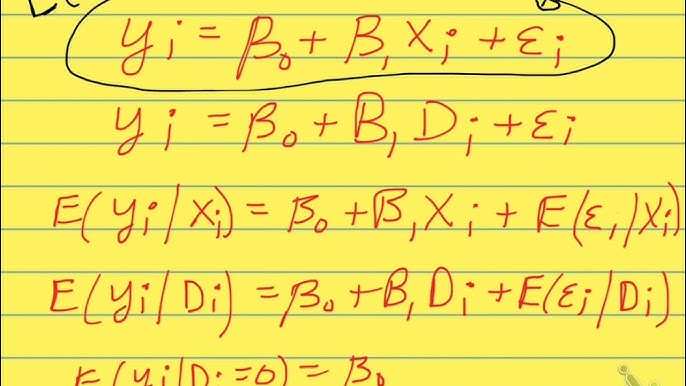 yi = β0 + B1 Xi + εi
yi = β0 + B1 Di + εi
E(yi/Xi) = β0 + B1 Xi + E(εi/Xi)
E(yi/Di) = β0 + B1 Di + E(εi/Di)
E(yi/Di=0) = β0